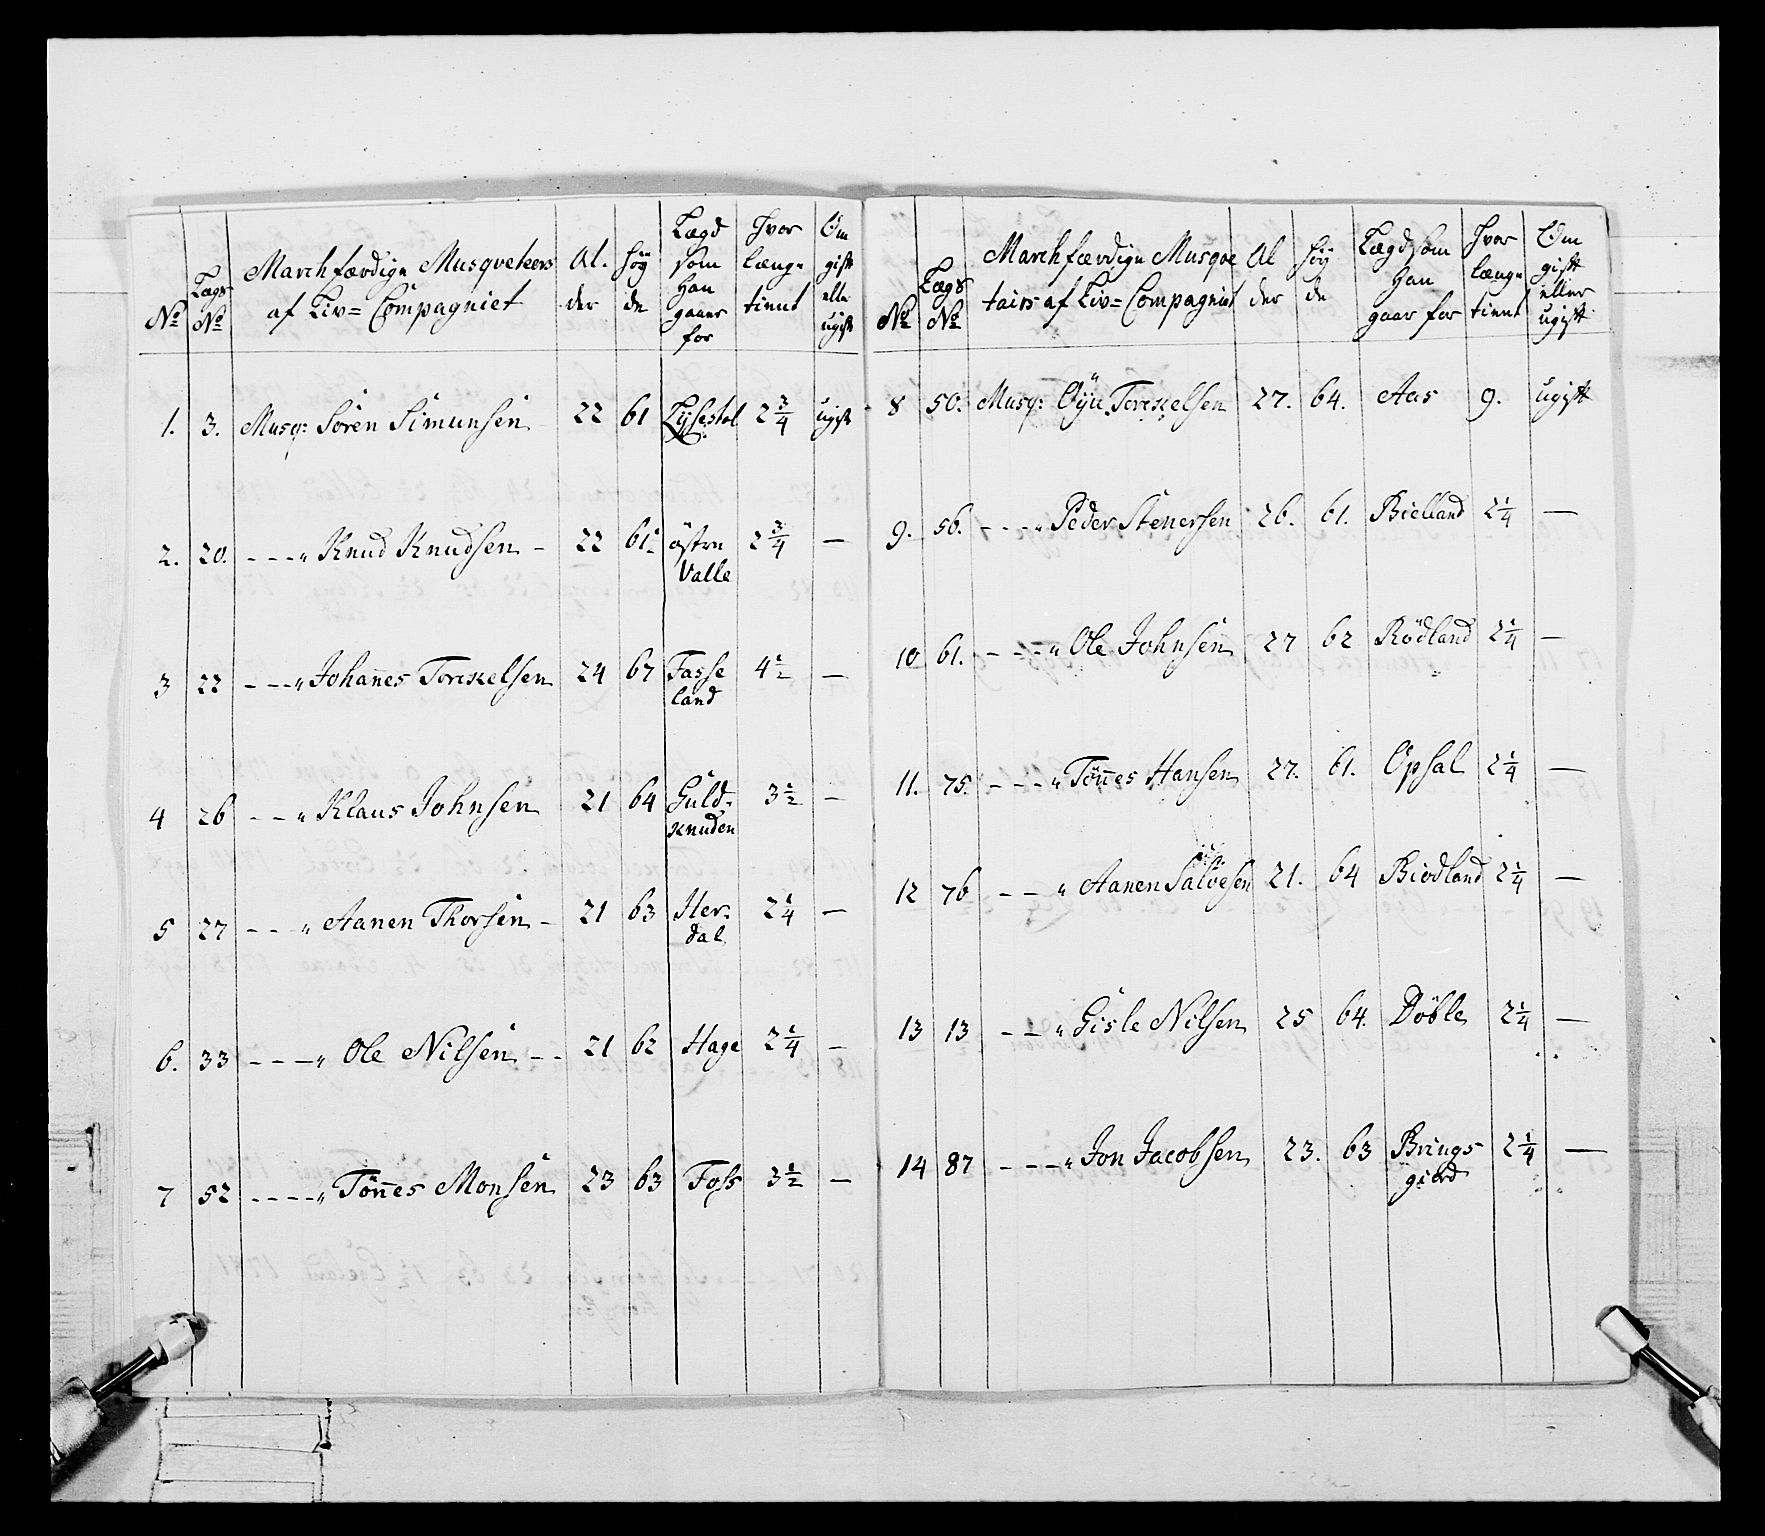 No Lægs No Marchfærdige Musqveteers af Liv=Compagniet Al. der Höy de Lægd som Han gaaer for Hvor længe tient Om gift elle ugift
1. 3. Musq: Sören Simunsen 22 61 Lysestol 2 3/4 ugift
2. 20. - - - " Knud Knudsen - 22 61 1/2 östre Valle 2 3/4 —
3 22 - - - " Johannes Torkelsen 24 67 Fasse land 4 1/2 —
4 26 - - " Klaus Johnsen 21 64 Guld- knuden 3 1/2 —
5 27 - - " Aanen Thorsen - 21 63 Her- dal 2 1/4 —
6. 33 - - - " Ole Nilsen - - 21 62 Hage 2 1/4 —
7 52 - - - - " Tönnes Monsen 23 63 Foss 3 1/2 —
No Lægs No Marchfærdige Musqve tairs af Liv=Compagniet Al der Höy de Lægd som Han gaar for Hvor længe tient Om gift eller ugift
8 50. Musq: Öyu Torkelsen 27. 64. Aas 9. ugift
9. 56. - - - " Peder Stenersen 26. 61. Bielland 2 1/4 —
10 61. - - - " Ole Johnsen 27 62 Rödland 2 1/4 —
11. 75. - - - " Tönnes Hansen 27. 61. Opsal 2 1/4 —
12 76 - - " Aanen Salvesen 21. 64 Biodland 2 1/4 —
13 13 - - " Gisle Nilsen 25 64. Döble 2 1/4 —
14 87 - - - " Jon Jacobsen 23. 63 Brings giord 2 1/4 —